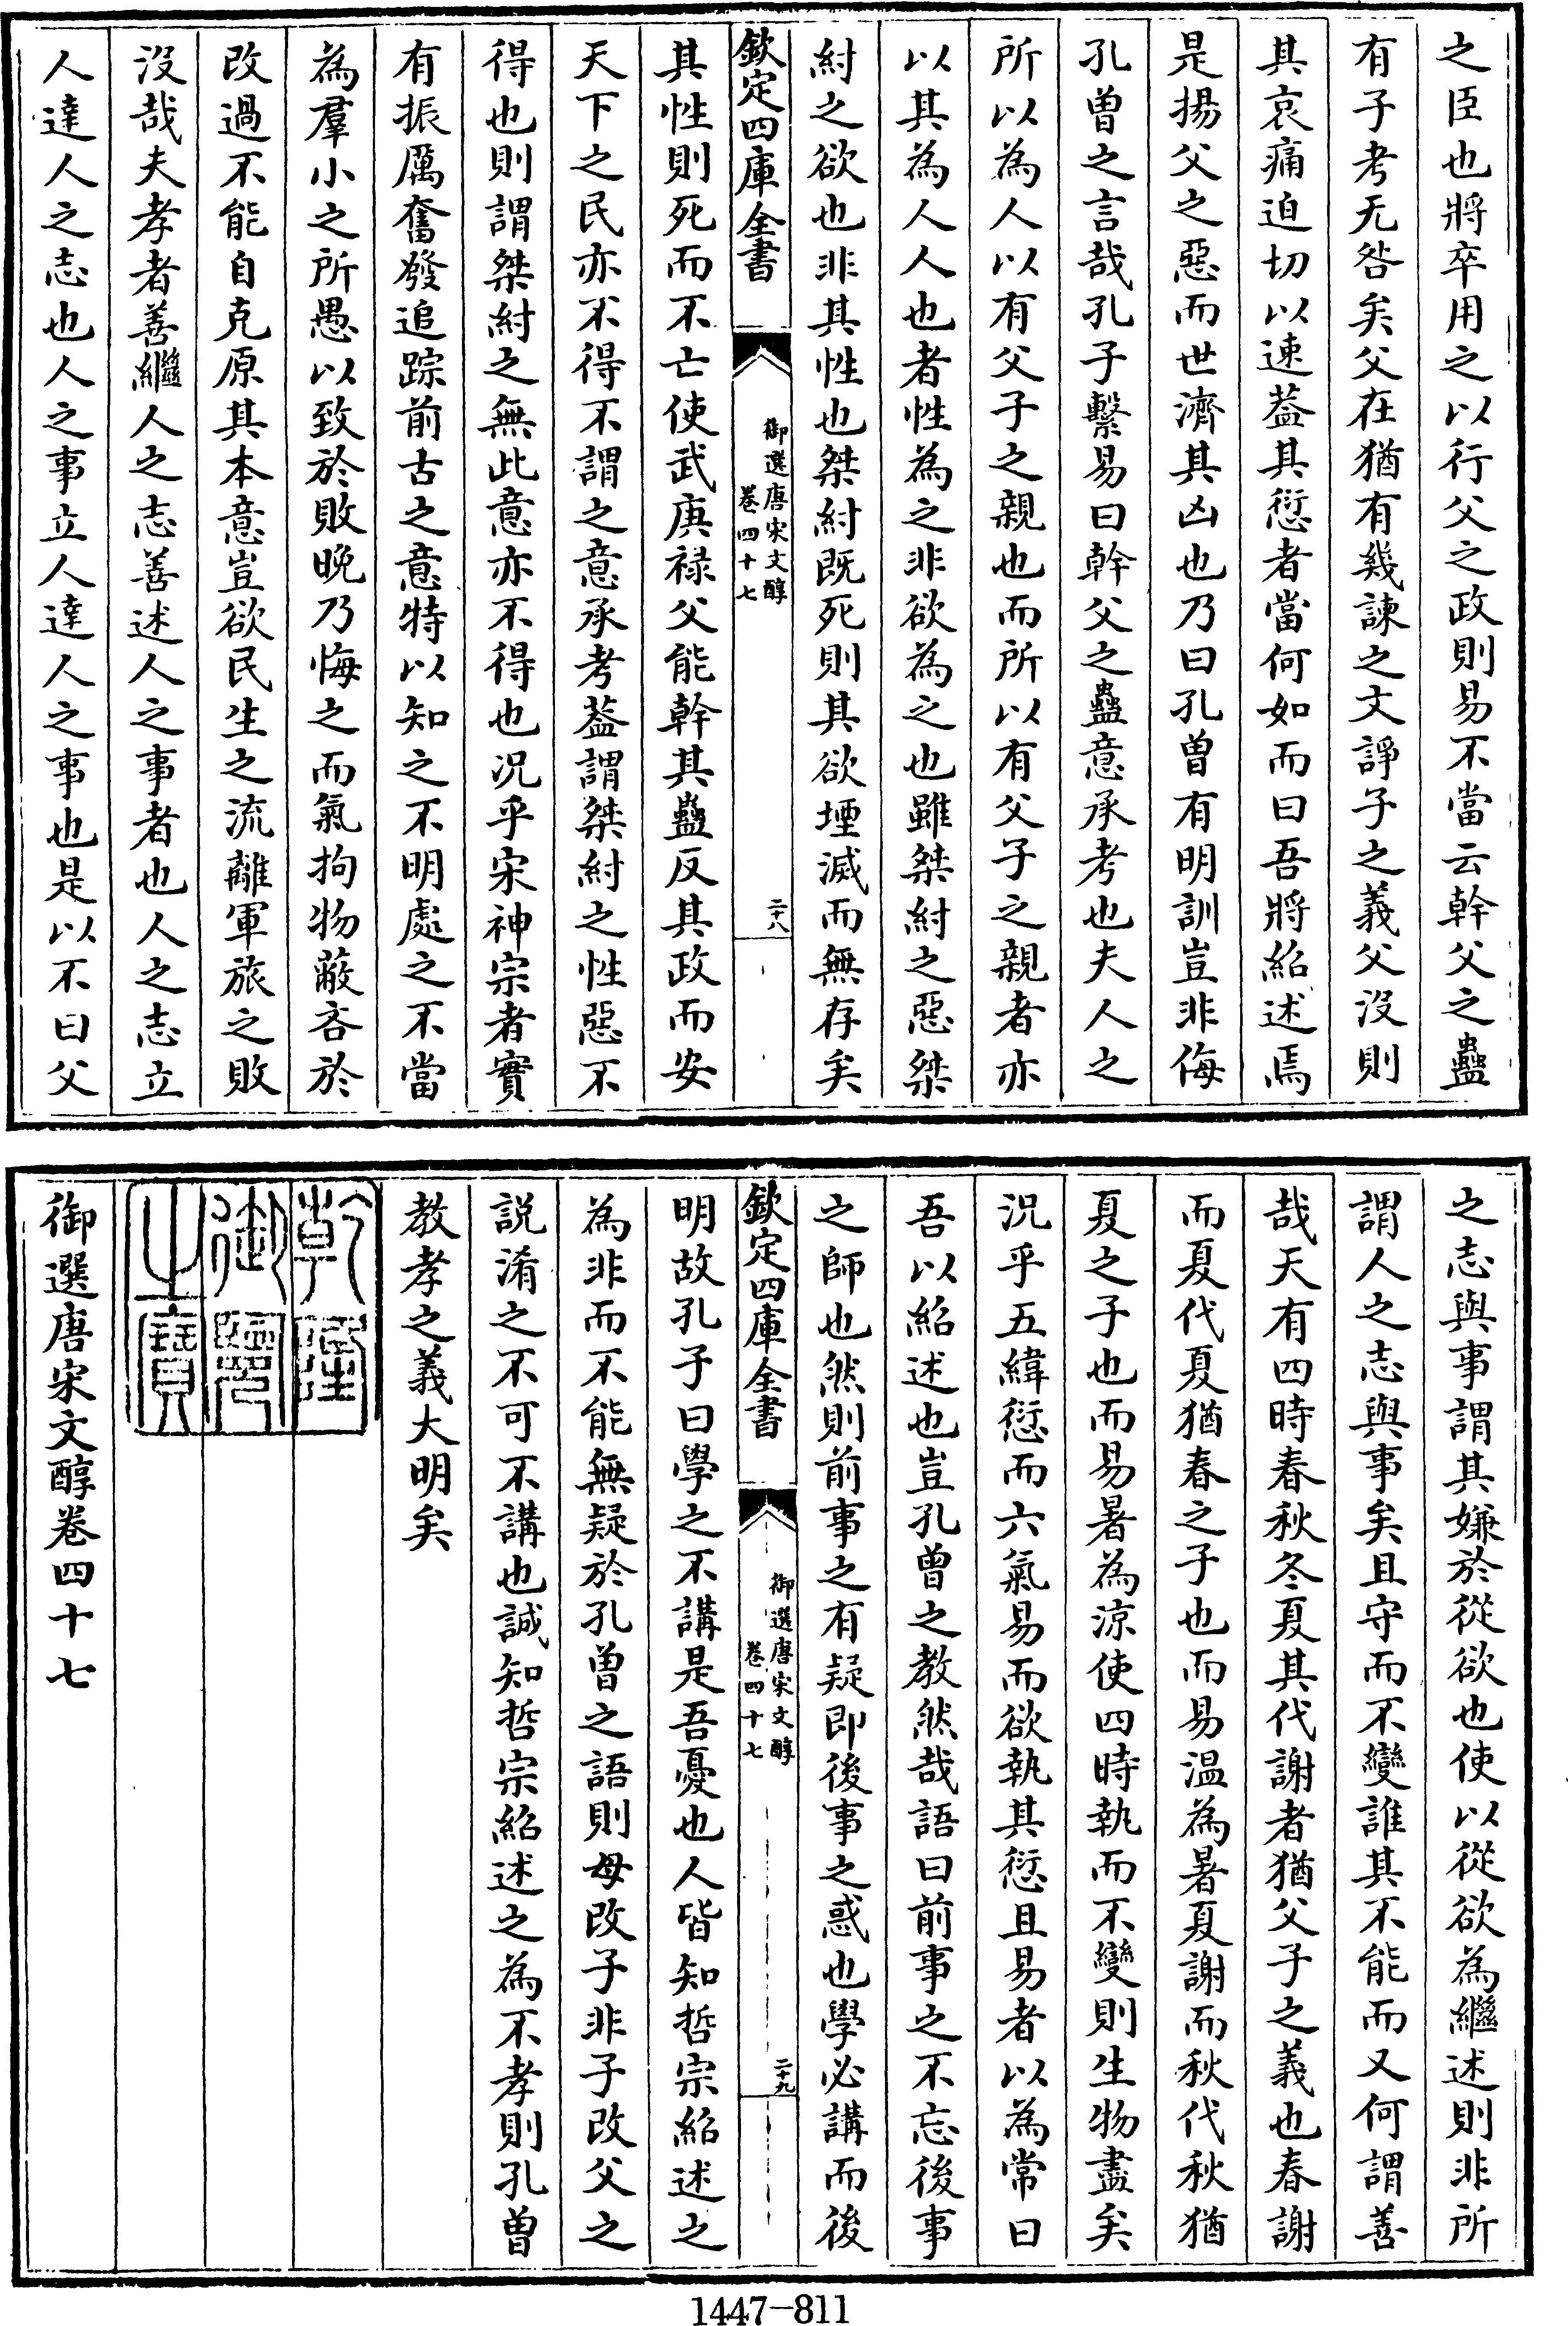 之臣也將卒用之以行父之政則易不當云幹父之蠱
有子考无咎矣父在猶有幾諫之文諍子之義父沒則
其哀痛迫切以速葢其愆者當何如而曰吾將紹述焉
是揚父之惡而世濟其凶也乃曰孔曾有明訓豈非侮
孔曾之言哉孔子繫易曰幹父之蠱意承考也夫人之
所以為人以有父子之親也而所以有父子之親者亦
以其為人人也者性為之非欲為之也雖桀紂之惡桀
紂之欲也非其性也桀紂既死則其欲堙滅而無存矣
欽定四庫全書
御選唐宋文醇
卷四十七
二十八
其性則死而不亡使武庚祿父能幹其蠱反其政而安
天下之民亦不得不謂之意承考葢謂桀紂之性惡不
得也則謂桀紂之無此意亦不得也况乎宋神宗者實
有振厲奮發追踪前古之意特以知之不明處之不當
為羣小之所愚以致於敗晚乃悔之而氣拘物蔽吝於
改過不能自克原其本意豈欲民生之流離軍旅之敗
沒哉夫孝者善繼人之志善述人之事者也人之志立
人達人之志也人之事立人達人之事也是以不曰父
之志與事謂其嫌於從欲也使以從欲為繼述則非所
謂人之志與事矣且守而不變誰其不能而又何謂善
哉天有四時春秋冬夏其代謝者猶父子之義也春謝
而夏代夏猶春之子也而易溫為暑夏謝而秋代秋猶
夏之子也而易暑為涼使四時執而不變則生物盡矣
况乎五緯愆而六氣易而欲執其愆且易者以為常曰
吾以紹述也豈孔曾之教然哉語曰前事之不忘後事
之師也然則前事之有疑即後事之惑也學必講而後
欽定四庫全書
御選唐宋文醇
卷四十七
二十九
明故孔子曰學之不講是吾憂也人皆知哲宗紹述之
為非而不能無疑於孔曾之語則毋改子非子改父之
說淆之不可不講也誠知哲宗紹述之為不孝則孔曾
教孝之義大明矣
乾隆
御覽
之寶
御選唐宋文醇卷四十七
1447-811